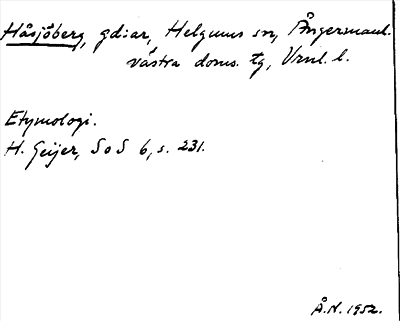 Håsjöberg, gd:ar, Helgums sn, Ångermanl.
västra doms. tg, Vrnl. l.
Etymologi.
H. Geijer, SoS 6, s. 231.
Å.N. 1952.